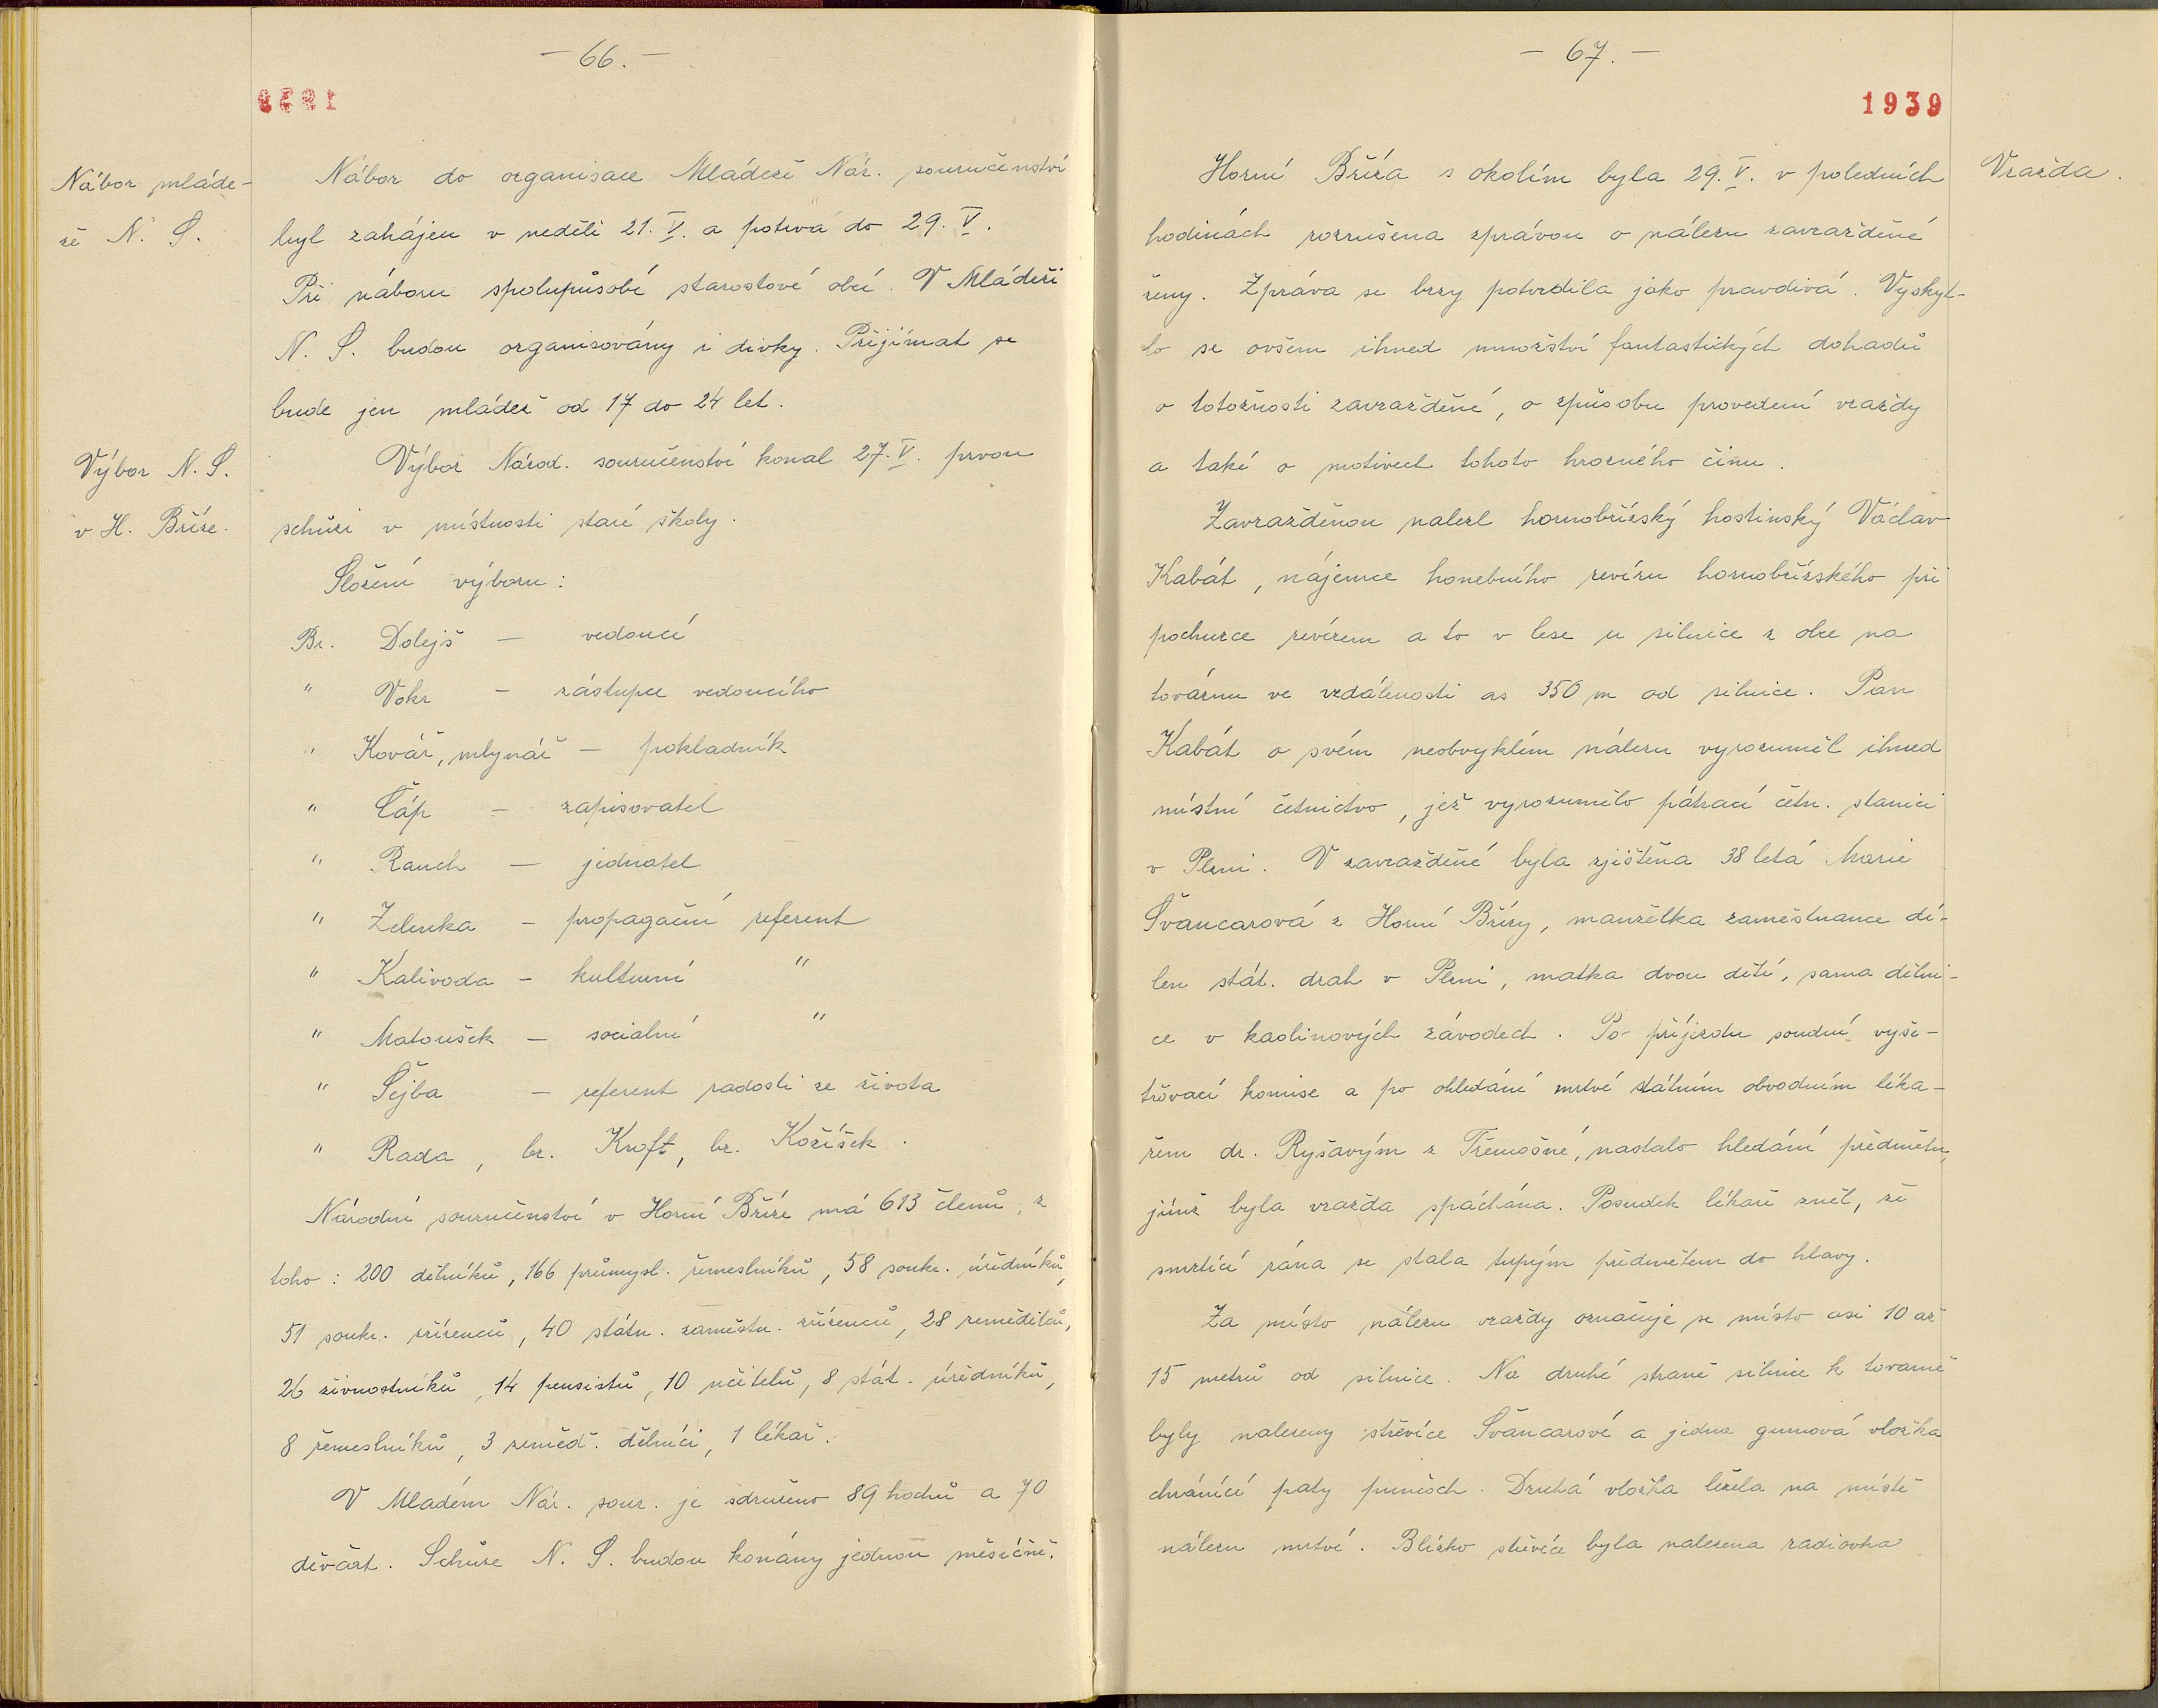 — 66. —
1939
Nábor mláde-
že N. S.
Nábor do organisace Mládeže Nár. souručenství
byl zahájen v neděli 21. V. a potrvá do 29. V.
Při náboru spolupůsobí starostové obcí. V Mládeži
N. S. budou organisovány i dívky. Přijímat se
bude jen mládež od 17 do 24 let.
Výbor N. S.
v H. Bříze.
Výbor Národ. souručenství konal 27. V. prvou
schůzi v místnosti staré školy.
Složení výboru:
Br. Dolejš — vedoucí
" Vokr — zástupce vedoucího
" Kovář, mlynář — pokladník
" Čáp — zapisovatel
" Rauch — jednatel
" Zelenka — propagační referent
" Kalivoda — kulturní "
" Matoušek — socialní "
" Šejba — referent radosti ze života
" Rada, br. Kroft, br. Kožíšek.
Národní souručenství v Horní Bříze má 613 členů, z
toho: 200 dělníků, 166 průmysl. řemeslníků, 58 soukr. úředníků,
51 soukr. zřízenců, 40 státn. zaměstn. zřízenců, 28 zemědělců,
26 živnostníků, 14 pensistů, 10 učitelů, 8 stát. úředníků,
8 řemeslníků, 3 zeměd. dělníci, 1 lékař.
V Mladém Nár. sour. je sdruženo 89 hochů a 70
děvčat. Schůze N. S. budou konány jednou měsíčně.
— 67. —
1939
Vražda.
Horní Bříza s okolím byla 29. V. v poledních
hodinách rozrušena zprávou o nálezu zavražděné
ženy. Zpráva se brzy potvrdila jako pravdivá. Vyskyt-
lo se ovšem ihned množství fantastických dohadů
o totožnosti zavražděné, o způsobu provedení vraždy
a také o motivech tohoto hrozného činu.
Zavražděnou nalezl hornobřízský hostinský Václav
Kabát, nájemce honebního revíru hornobřízského při
pochůzce revírem a to v lese u silnice z obce na
továrnu ve vzdálenosti as 350 m od silnice. Pan
Kabát o svém neobvyklém nálezu vyrozuměl ihned
místní četnictvo, jež vyrozumělo pátrací četn. stanici
v Plzni. V zavražděné byla zjištěna 38 letá Marie
Švancarová z Horní Břízy, manželka zaměstnance dí-
len stát. drah v Plzni, matka dvou dětí, sama dělni-
ce v kaolinových závodech. Po příjezdu soudní vyše-
třovací komise a po ohledání mrtvé státním obvodním léka-
řem dr. Ryšavým z Třemošné, nastalo hledání předmětu,
jímž byla vražda spáchána. Posudek lékaře zněl, že
smrtící rána se stala tupým předmětem do hlavy.
Za místo nálezu vraždy označuje se místo asi 10 až
15 metrů od silnice. Na druhé straně silnice k tovarně
byly nalezeny střevíce Švancarové a jedna gumová vložka
chránící paty punčoch. Druhá vložka ležela na místě
nálezu mrtvé. Blízko střevíce byla nalezena radiovka